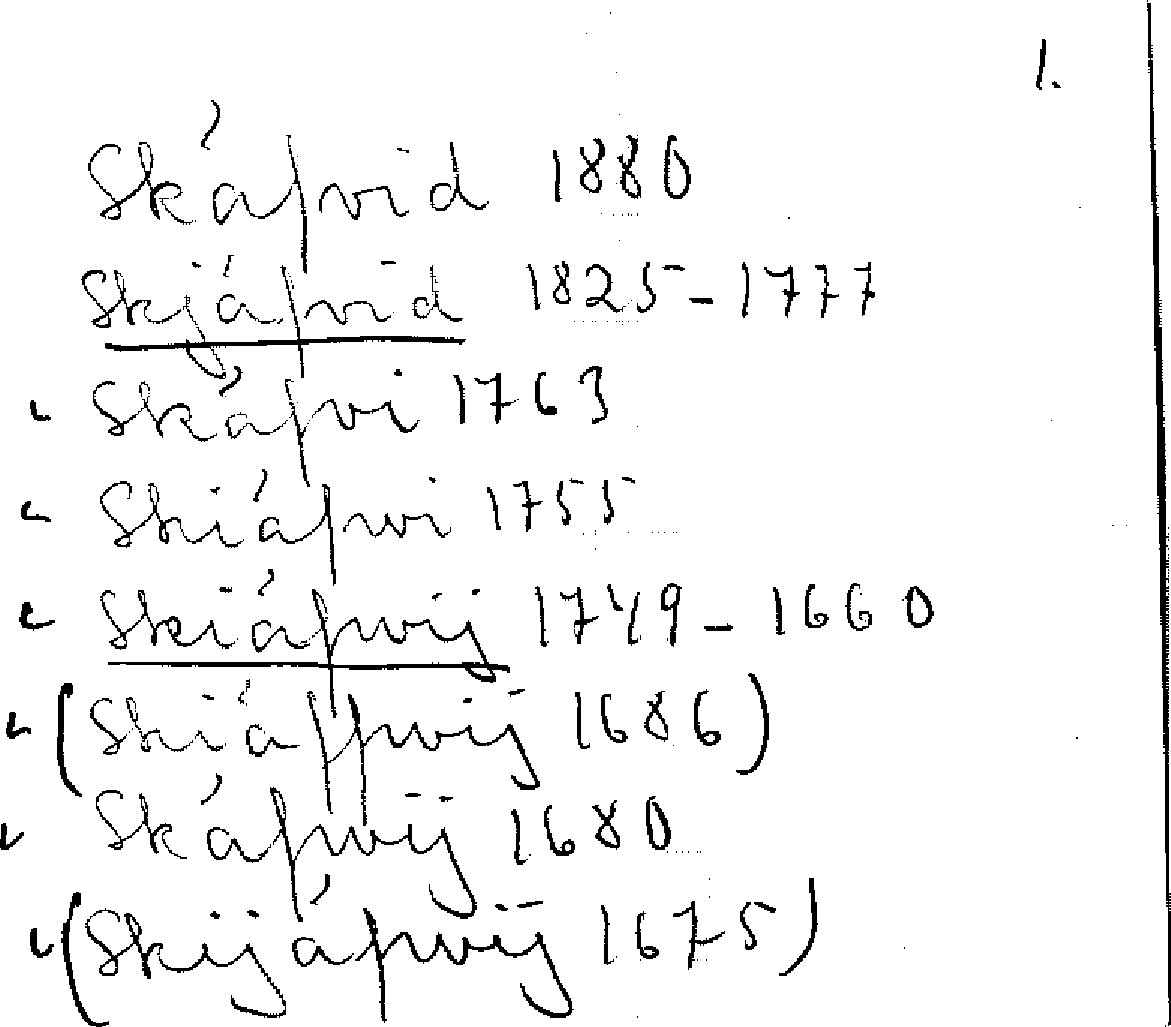 1.
Skápvid 1880
Skjápvid 1825-1777
Skápvi 1763
Skiápvi 1755
Skiápvij 1749-1660
(Skiáppvij 1686)
Skápvij 1680
(Skijápvij 1675)